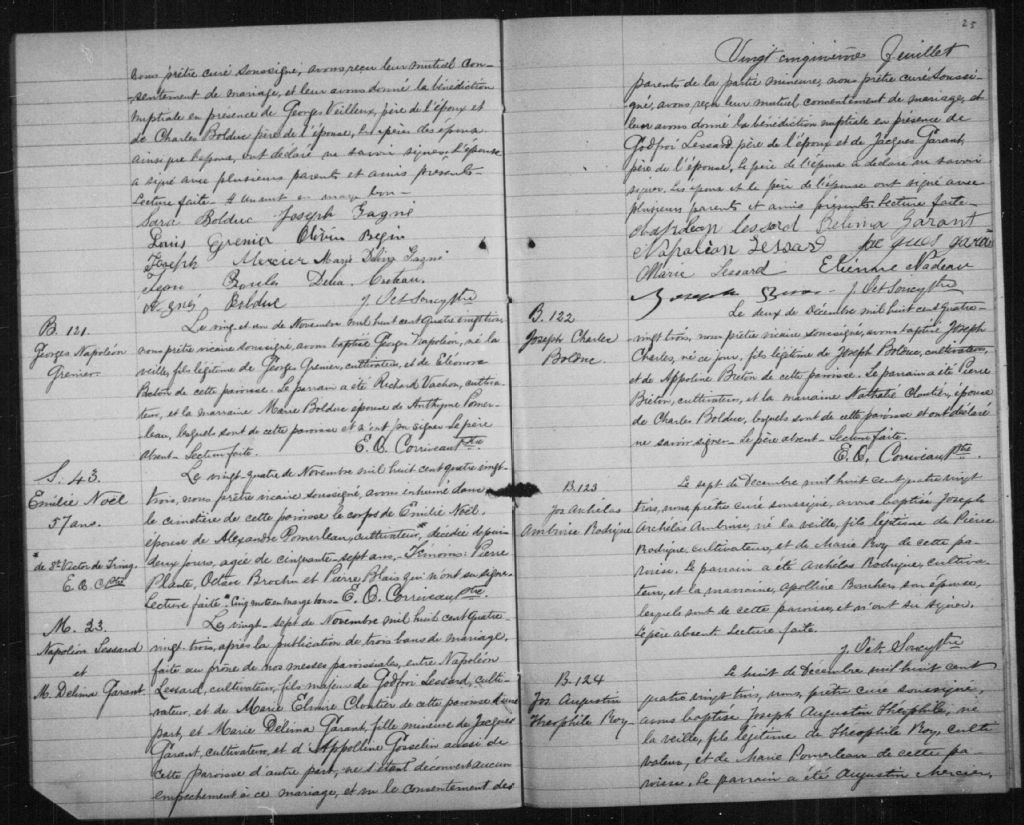 nous prêtre curé soussigné, avons reçu leur mutuel con-
sentement de mariage, et leur avons donné la bénédiction
nuptiale en présence de Georges Veilleux, père de l'époux et
de Charles Bolduc père de l'épouse. Le père des époux
ainsi que l'époux, ont déclaré ne savoir signer, l'épouse
a signé avec plusieurs parents et amis présents-
Lecture faite- en bon-
Sara Bolduc Joseph Gagné
Louis Grenier Olivier Begin
Joseph Mercier Marie Délina Gagné
Delia Croteau
Bolduc J. Oct Soucy Ptre
B. 121.
Georges Napoléon
Grenier
Le vingt et un de Novembre mil huit cent quatre vingt trois,
nous prêtre vicaire soussigné, avons baptisé Georges Napoléon, né la
veille, fils légitime de George Grenier, cultivateur, et de Eléonore
Breton de cette paroisse. Le parrain a été Richard Vachon, cultiva-
teur, et la marraine Marie Bolduc épouse de Anthyme Pomer-
leau, lesquels sont de cette paroisse et n'ont pu signer. Le père
absent. Lecture faite. E. C. Corriveau Ptre
S. 43
Emilie Noël
57 ans.
"de St Victor de Tring.
E. C. C. Ptre
Le vingt-quatre de Novembre mil huit cent quatre vingt-
trois, nous prêtre vicaire soussigné, avons inhumé dans
le cimetière de cette paroisse le corps de Emilie Noël,
épouse de Alexandre Pomerleau, cultivateur," décédée depuis
deux jours, agée de cinquante sept ans. Témoins: Pierre
Plante, Octave Brochu et Pierre Blais qui n'ont su signer-
Lecture faite. Cinq mots en marge bons- E. C. Corriveau Ptre
M. 23.
Napoléon Lessard
et
M. Delima Garant
Le vingt-sept de Novembre mil huit cent quatre-
vingt-trois, après la publication de trois bans de mariage,
faite au prône de nos messes paroissiales, entre Napoléon
Lessard, cultivateur, fils majeur de Godfroi Lessard, culti-
vateur, et de Marie Elmire Cloutier de cette paroisse d'une
part, et Marie Délima Garant, fille mineure de Jacques
Garant, cultivateur, et d'Appolline Gosselin aussi de
cette paroisse d'autre part, ne s'étant découvert aucun
empêchement à ce mariage, et vu le consentement des
25
Vingt cinquième feuillet
parents de la partie mineure, nous prêtre curé soussi-
gné, avons reçu leur mutuel consentement de mariage, et
leur avons donné la bénédiction nuptiale en présence de
Godfroi Lessard père de l'époux et de Jacques Garant,
père de l'épouse, le père de l'époux a déclaré ne savoir
signer. Les époux et le père de l'épouse ont signé avec
plusieurs parents et amis présents. Lecture faite-
Napolean lessard Delima Garant
Napolean Lessard Jacques garan
Marie Lessard Etienne Nadeau
Joseph J. Oct Soucy Ptre
B. 122
Joseph Charles
Bolduc.
Le deux de Décembre mil huit cent quatre-
vingt trois, nous prêtre vicaire soussigné, avons baptisé Joseph
Charles, né ce jour, fils légitime de Joseph Bolduc, cultivateur,
et de Appoline Breton de cette paroisse. Le parrain a été Pierre
Breton, cultivateur, et la marraine Nathalie Cloutier, épouse
de Charles Bolduc, lesquels sont de cette paroisse et ont déclaré
ne savoir signer- Le père absent- Lecture faite.
E. C. Corriveau Ptre
B. 123
Jos Archélas
Ambroise Rodrigue
Le sept de Décembre mil huit cent quatre vingt
trois, nous prêtre curé soussigné, avons baptisé Joseph
Archélas Ambroise, né la veille, fils légitime de Pierre
Rodrigue, cultivateur, et de Marie Roy de cette pa-
roisse. Le parrain a été Archélas Rodrigue, cultiva-
teur, et la marraine, Apolline Boucher, son épouse,
lesquels sont de cette paroisse, et n'ont su signer.
Le père absent. Lecture faite.
J. Oct. Soucy Ptre
B. 124
Jos Augustin
Théophile Roy
Le huit de Décembre mil huit cent
quatre vingt trois, nous, prêtre curé soussigné,
avons baptisé Joseph Augustin Théophile, né
la veille, fils légitime de Théophile Roy culti
vateur, et de Marie Pomerleau de cette pa
roisse. Le parrain a été Augustin Mercier,